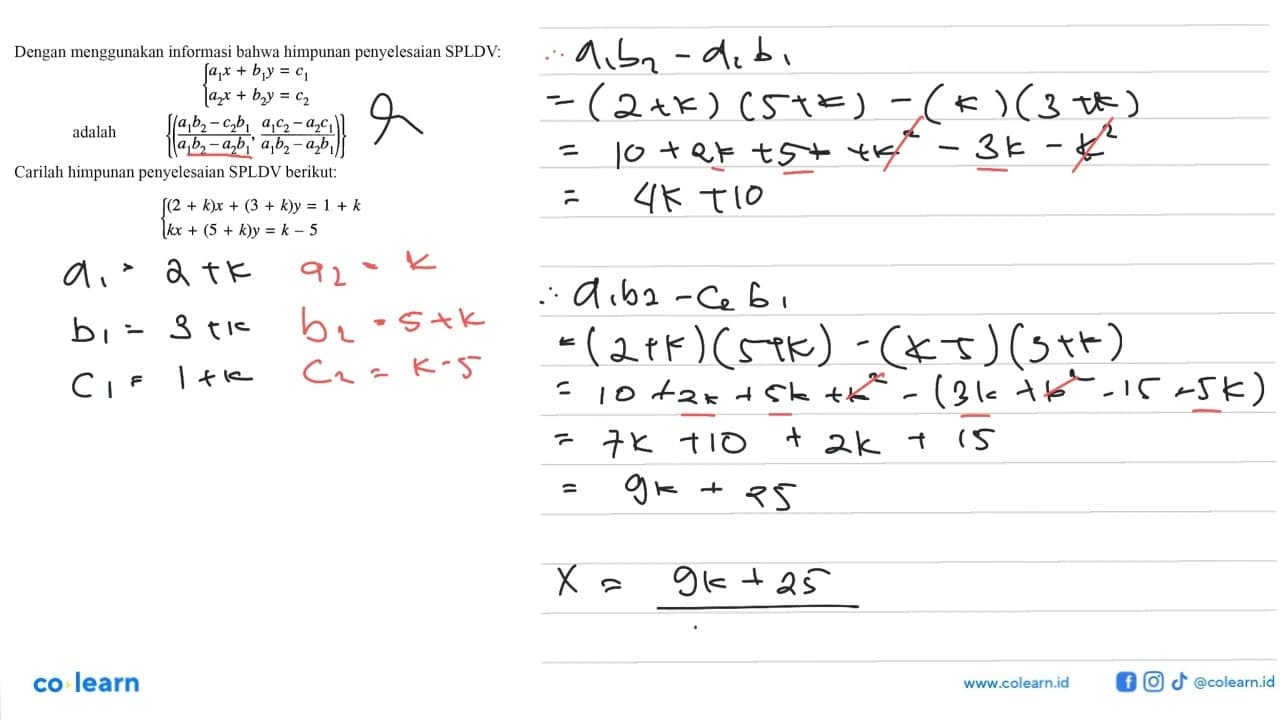 Dengan menggunakan informasi bahwa himpunan penyelesaian SPLDV:
{a₁x + b₁y = c₁
{a₂x + b₂y = c₂
adalah {((a₁b₂ – c₂b₁)/(a₁b₂ – a₂b₁), (a₁c₂ – a₂c₁)/(a₁b₂ – a₂b₁))}
Carilah himpunan penyelesaian SPLDV berikut:
{(2 + k)x + (3 + k)y = 1 + k
{kx + (5 + k)y = k – 5
a₁ = 2+k a₂ = k
b₁ = 3+k b₂ = 5+k
C₁ = 1+k C₂ = k-5
∴ a₁b₂ - a₂b₁
= (2+k)(5+k) - (k)(3+k)
= 10 + 2k + 5k + k² - 3k - k²
= 4k + 10
∴ a₁b₂ - C₂b₁
= (2+k)(5+k) - (k-5)(3+k)
= 10 + 2k + 5k + k² - (3k + k² - 15 - 5k)
= 7k + 10 + 2k + 15
= 9k + 25
X = 9k + 25
co learn
www.colearn.id @colearn.id